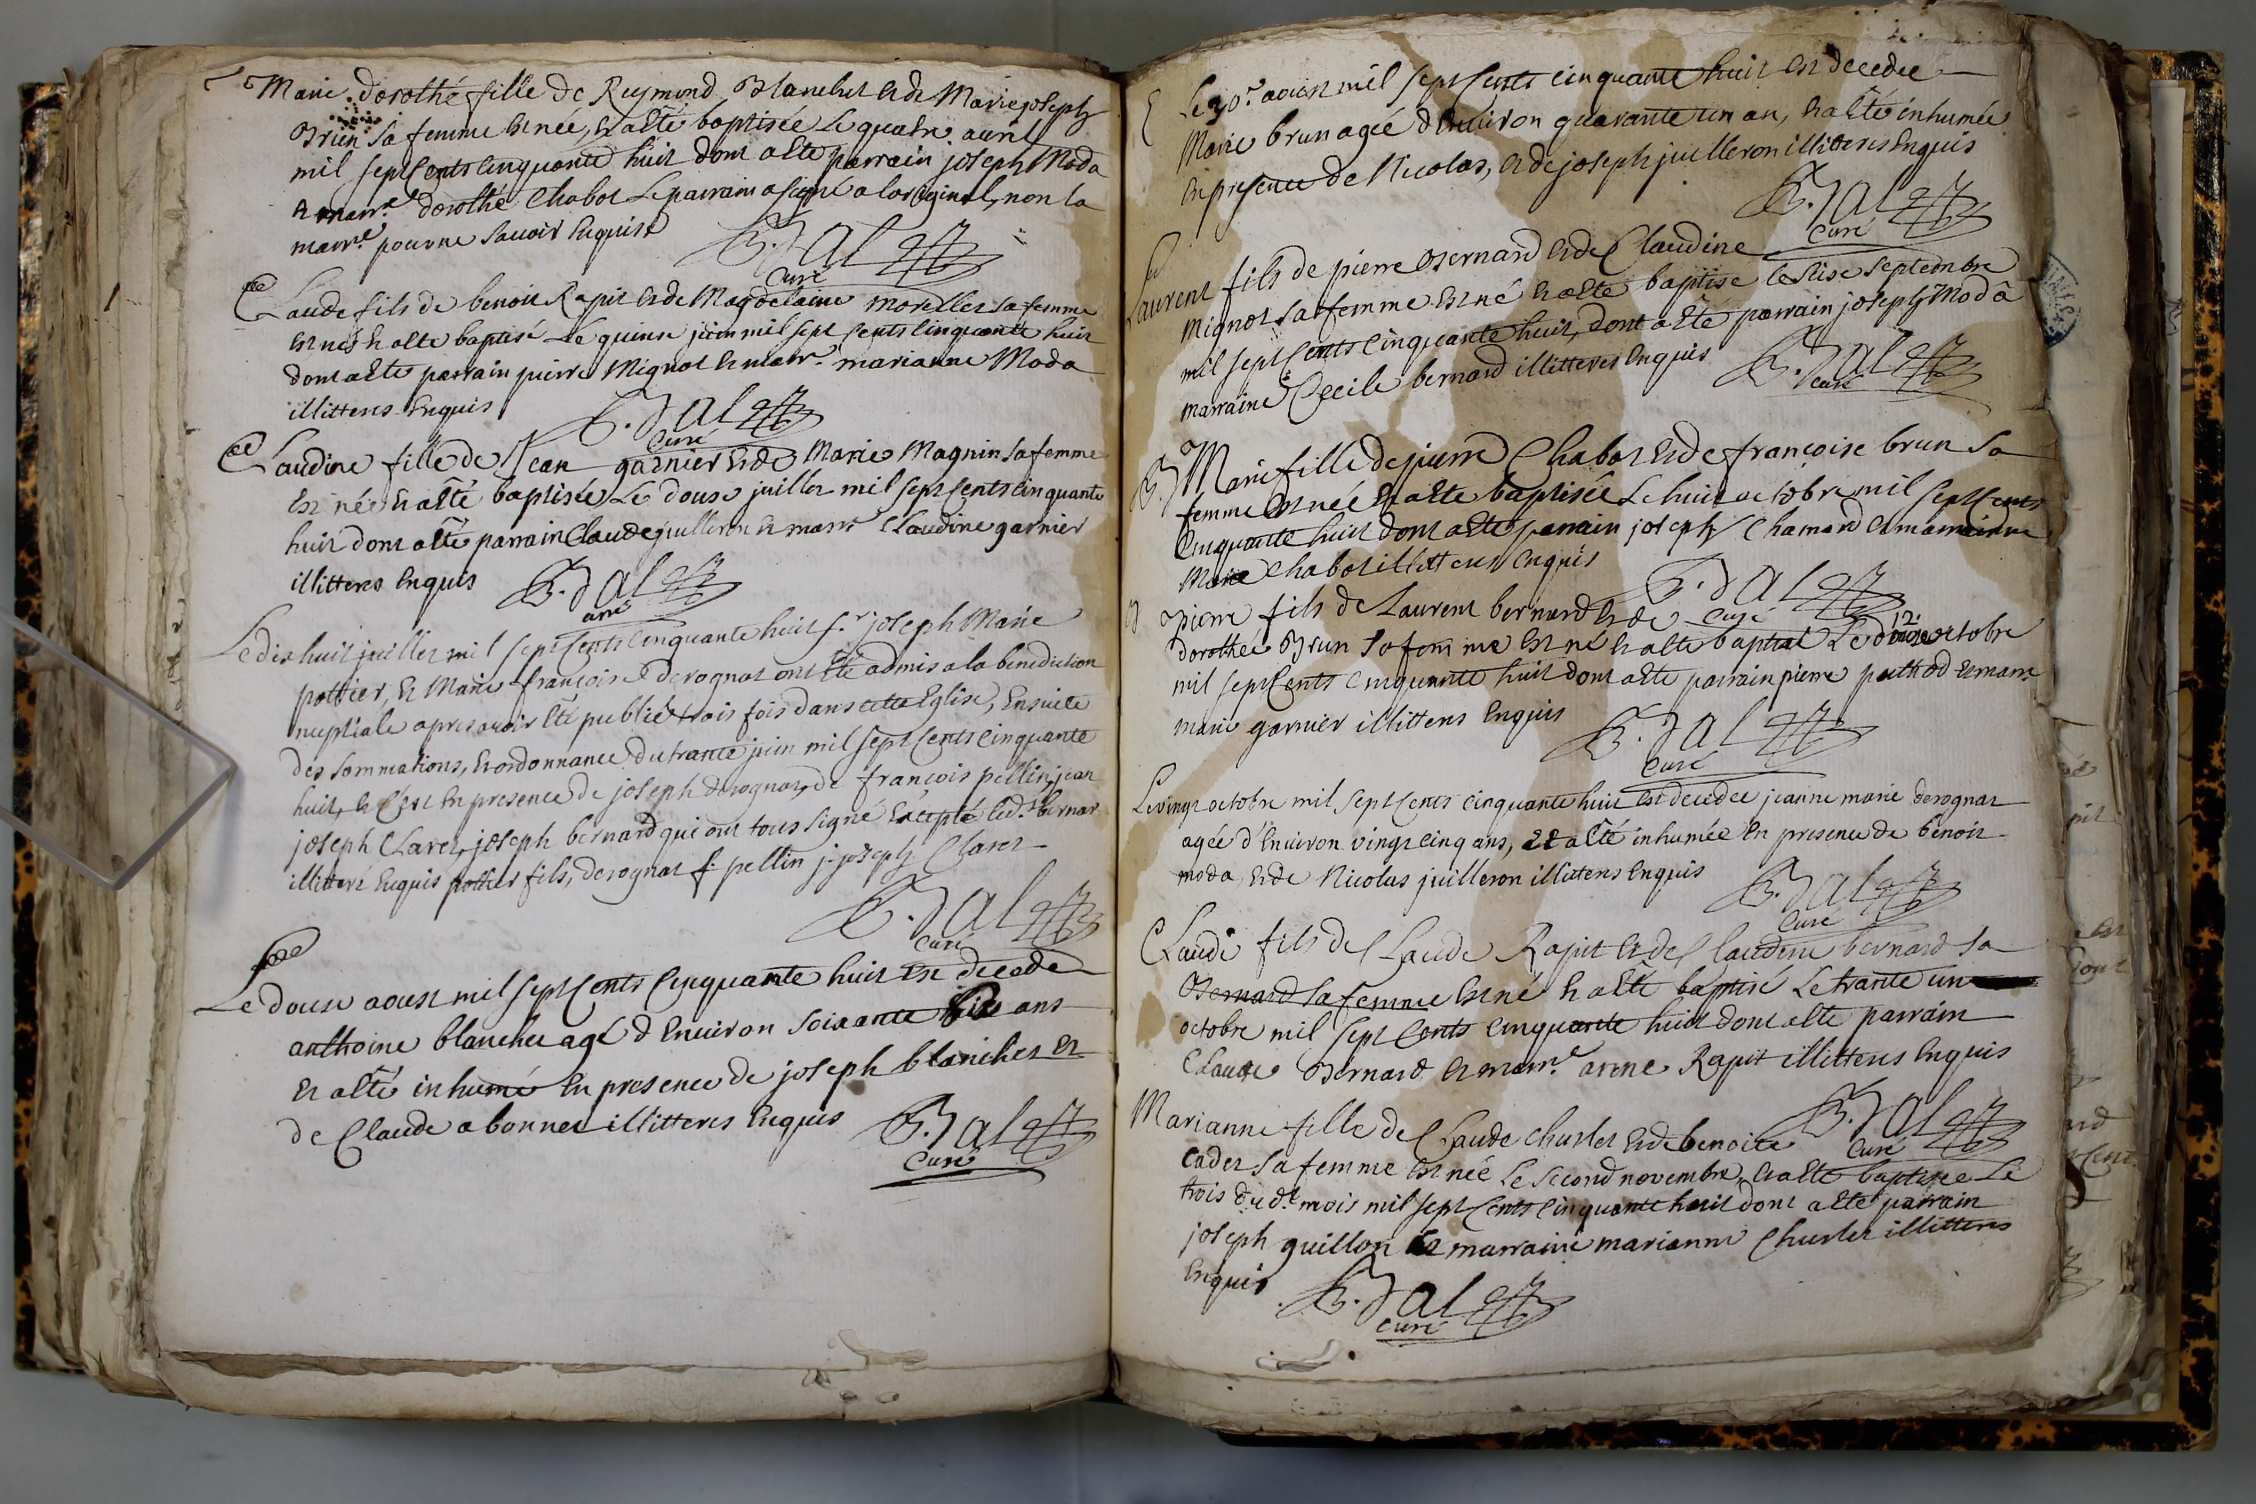 Marie dorothé fille de Reymond Blanchet et de Marie joseph
Brun sa femme est née, et a eté baptisée Le quatre avril
mil sept Cents Cinquante huit dont a eté parrain joseph Moda
et marr.e dorothé Chabot Le parrain a signé a l'original, non la
marr.e pour ne savoir Enquise
B. Dal
Curé
Claude fils de benoit Rapit et de Magdelaine morellet sa femme
est né et a eté baptisé Le quinse juin mil sept Cents Cinquante huit
dont a eté parrain pierre Mignot et marr.e marianne Moda
illitteres Enquis
B. Dal
Curé
Claudine fille de Jean garnier et de Marie Magnin sa femme
est née et a eté baptisée Le douse juillet mil sept Cents Cinquante
huit dont a eté parrain Claude juilleron et marr.e Claudine garnier
illitteres Enquis
B. Dal
curé
Le dix huit juillet mil sept Cents Cinquante huit s.r joseph Marie
pottier, et Marie françoise derognat ont été admis a la benediction
nuptiale apres avoir Eté publié trois fois dans cette Eglise, Ensuite
des sommations, et ordonnance du trante juin mil sept Cents Cinquante
huit, et C'est En presence de joseph derognat, de françois pellin, jean
joseph Claret, joseph bernard qui ont tous signé Excepté led.t bernar
illitteré Enquis pottier fils, derognat f. pellin j. joseph Claret
B. Dal
Curé
Le douse aoust mil sept Cents Cinquante huit est decede
anthoine blanchet agé d Environ soixante ans
et a eté inhumé En presence de joseph blanchet et
de Claude a bonnet illitteres Enquis
B. Dal
Curé
Le 30.e aoust mil sept Cents Cinquante huit est decedee
Marie brun agée d'Environ quarante un an, et a eté inhumée
En presence de Nicolas, et de joseph juilleron illitteres Enquis
B. Dal
Curé
Laurent fils de pierre Bernard et de Claudine
Mignot sa femme est né et a eté baptise le sise septembre
mil sept Cents Cinquante huit, dont a eté parrain joseph Moda
marraine Cecile bernard illitteres Enquis
B. Dal
Curé
Marie fille de pierre Chabot et de françoise brun sa
femme est née et a eté baptisée Le huit octobre mil sept Cents
Cinquante huit dont a eté parrain joseph Chamard et marraine
Marie Chabot illitteres Enquis
B. Dal
Curé
pierre fils de Laurent bernard et de
12
dorothée Brun sa femme est né et a eté baptisé Le douse octobre
mil sept Cents Cinquante huit dont a eté parrain pierre pathod et marr
marie garnier illitteres Enquis
B. Dal
Curé
Le vingt octobre mil sept Cents Cinquante huit est decedee jeanne marie derognat
agée d'Environ vingt cinq ans, et a eté inhumée En presence de benoit
moda, et de Nicolas juilleron illitteres Enquis
B. Dal
Curé
Claude fils de Claude Rapit et de Claudine bernard sa
Bernard sa femme est né et a eté baptisé Le trante un
octobre mil sept Cents Cinquante huit dont a eté parrain
Claude Bernard et marr.e anne Rapit illitteres Enquis
B. Dal
Curé
Marianne fille de Claude Churlet et de benoite
Cadet sa femme est née Le second novembre, et a eté baptisee Le
trois du d.t mois mil sept Cents Cinquante huit dont a eté parrain
joseph guillon et marraine marianne Churlet illitteres
Enquis
B. Dal
Curé